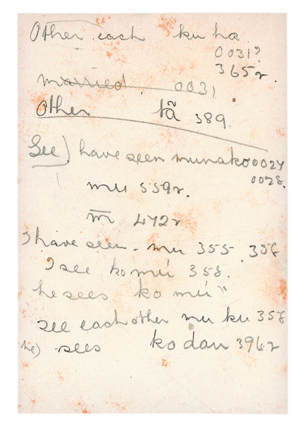 Other each ku ha
0031?
365r.
married. 0031
Other tã 389
See) have seen munako 0027
0028.
mu 559r.
m̅ 472r
I have seen - mu 355. 356
I see ko mú 358.
he sees ko mú "
see each other mu ku 358
he) sees ko dau 396r